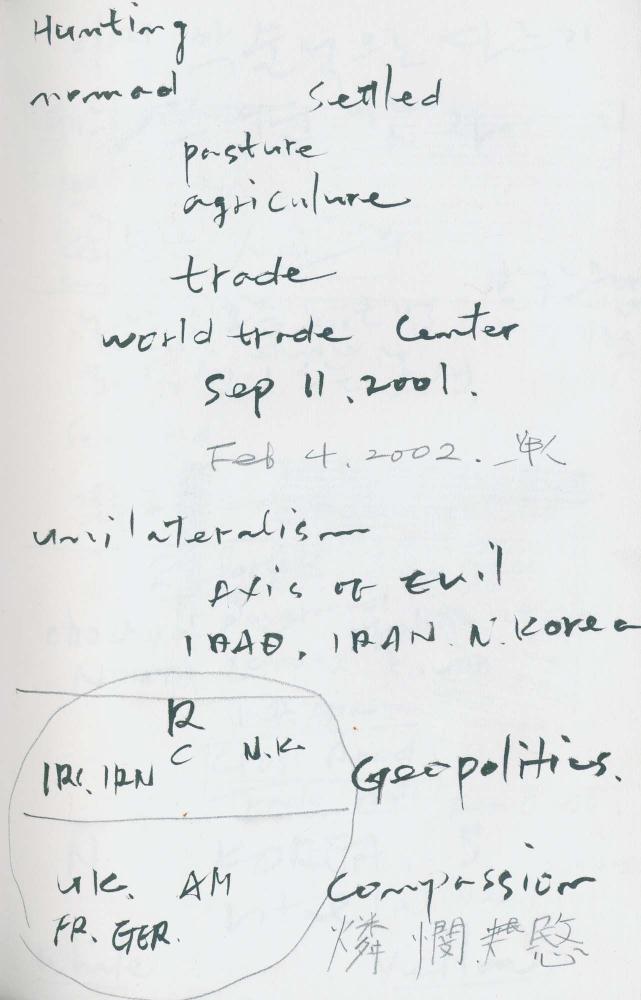 Hunting
nomad settled
pasture
agriculture
trade
world trade Center
Sep 11, 2001.
Feb 4, 2002.
unilateralism
Axis of Evil
IRAQ, IRAN. N. Korea
R
C N.K.
IRQ. IRN
Geopolitics.
UK. AM
FR. GER.
Compassion
憐憫